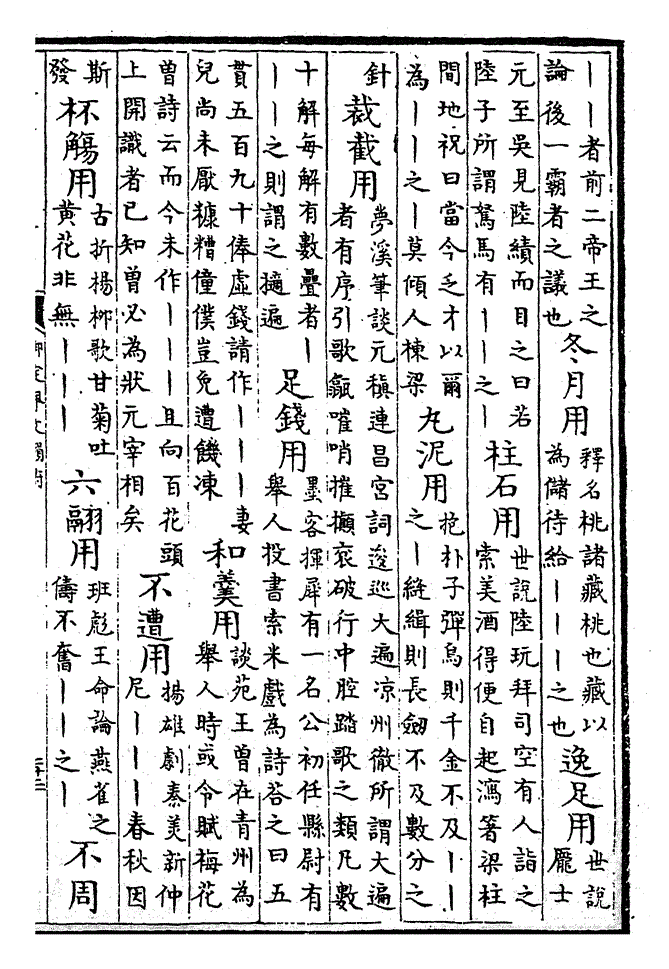 丨丨者前二帝王之
論後一霸者之議也
冬月用
釋名桃諸藏桃也藏以
為儲待給丨丨丨之也
逸足用
世說
龐士
元至吳見陸績而目之曰若
陸子所謂駑馬有丨丨之丨
柱石用
世說陸玩拜司空有人詣之
索美酒得便自起瀉箸梁柱
間地祝曰當今乏才以爾
為丨丨之丨莫傾人棟梁
丸泥用
抱朴子彈鳥則千金不及丨丨
之丨縫緝則長劒不及數分之
針
裁截用
夢溪筆談元稹連昌宮詞逡巡大遍凉州徹所謂大遍
者有序引歌㽎嗺哨摧攧衮破行中腔踏歌之類凡數
十解每解有數疊者丨
丨丨之則謂之擿遍
足錢用
墨客揮犀有一名公初任縣尉有
舉人投書索米戲為詩荅之曰五
貫五百九十俸虛錢請作丨丨丨妻
兒尚未厭糠糟僮僕豈免遭饑凍
和羹用
談苑王曽在青州為
舉人時或令賦梅花
曽詩云而今未作丨丨丨且向百花頭
上開識者已知曽必為狀元宰相矣
不遭用
揚雄劇秦美新仲
尼丨丨丨春秋因
斯
發
杯觴用
古折楊栁歌甘菊吐
黄花非無丨丨丨
六翮用
班彪王命論燕雀之
儔不奮丨丨之丨
不周